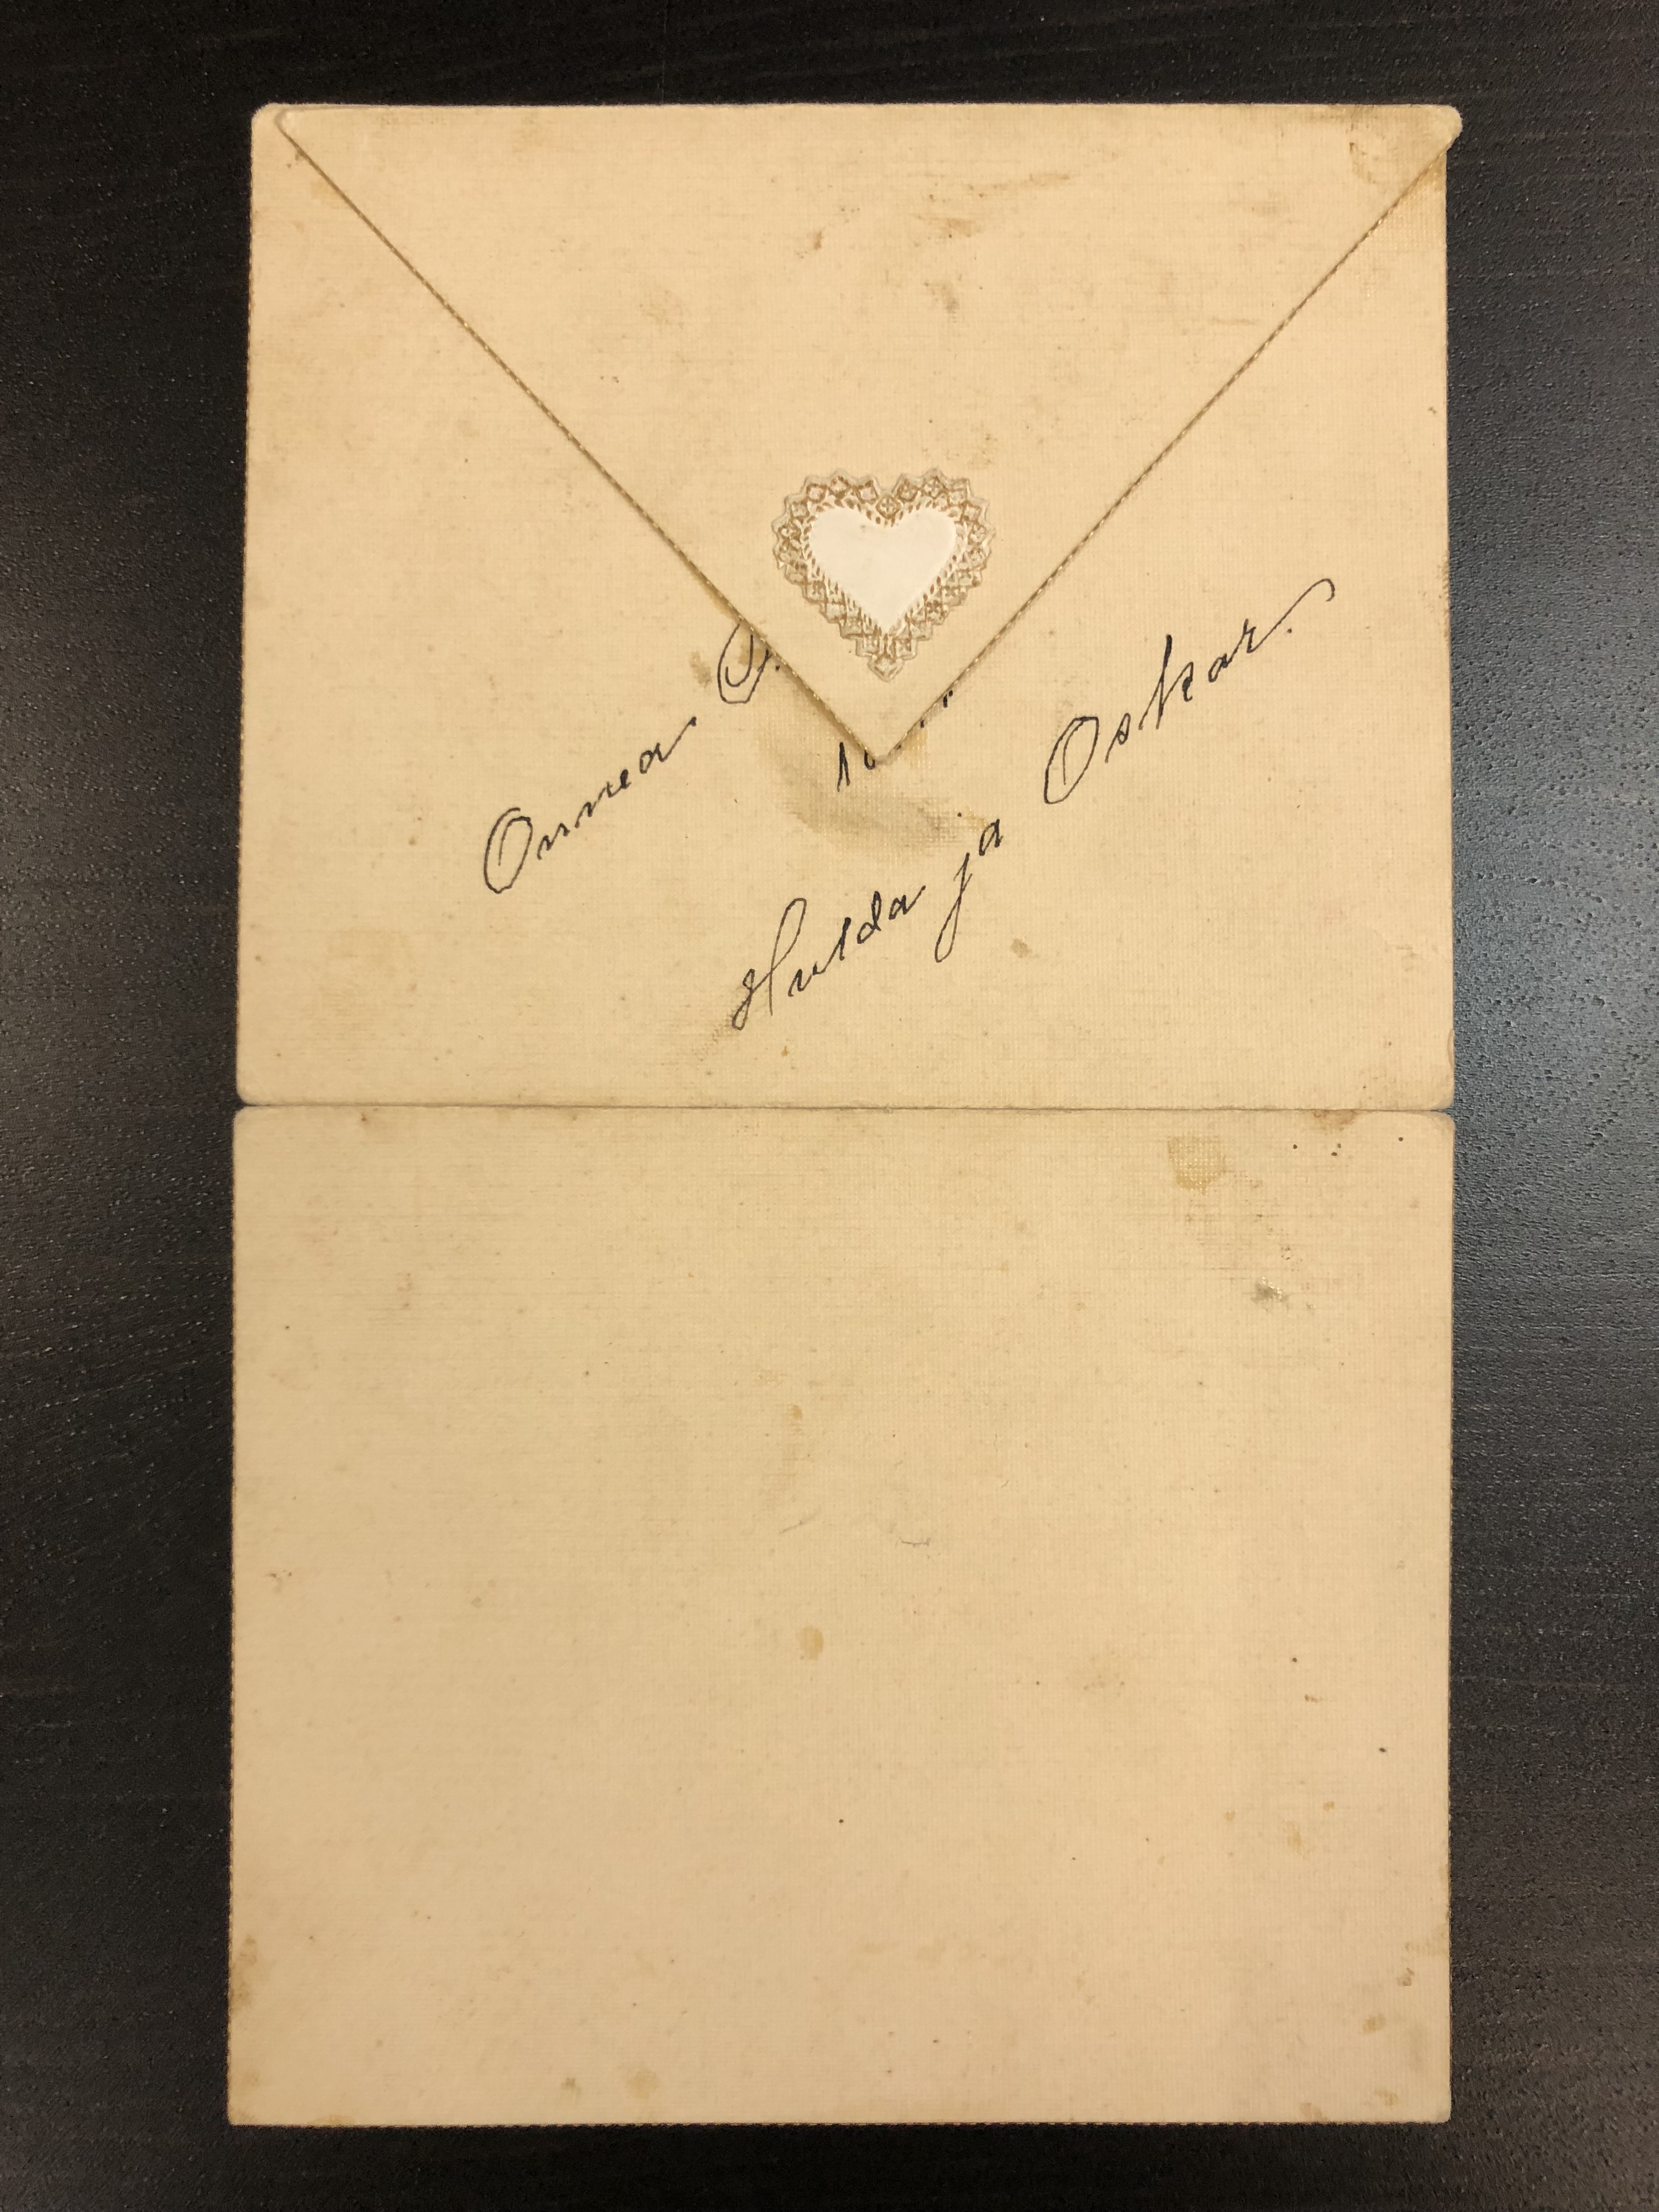 Onnea O.
Hulda ja Oskar.